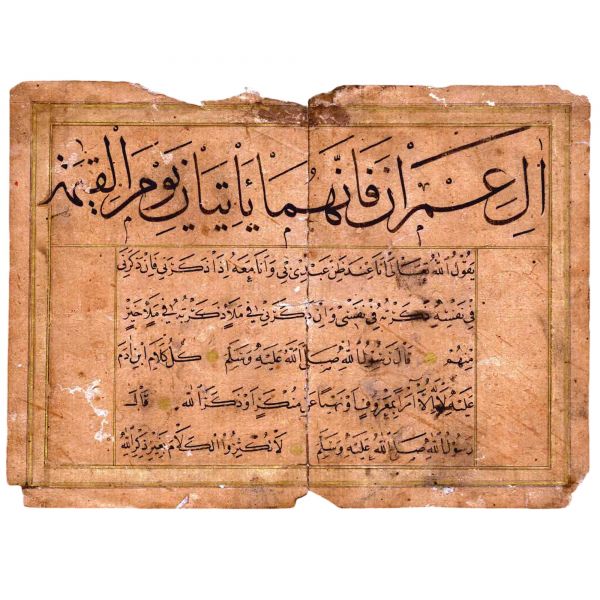 اٰلِ عِمْرٰانَ فَاِنَّهُمَا يَأْتِيَانِ يَوْمَ الْقِيٰمَةِ
يقول الله تعالى انا عند ظن عبدى بى وانا معه اذا ذكرنى فان ذكرنى
فى نفسه ذكرته فى نفسى وان ذكرنى فى ملأ ذكرته فى ملأ خير
منهم قال رسول الله صلى الله عليه وسلم كل كلام ابن ادم
عليه لا له الا امرا بمعروف او نهيا عن منكر او ذكر الله قال
رسول الله صلى الله عليه وسلم لا تكثروا الكلام بغير ذكر الله